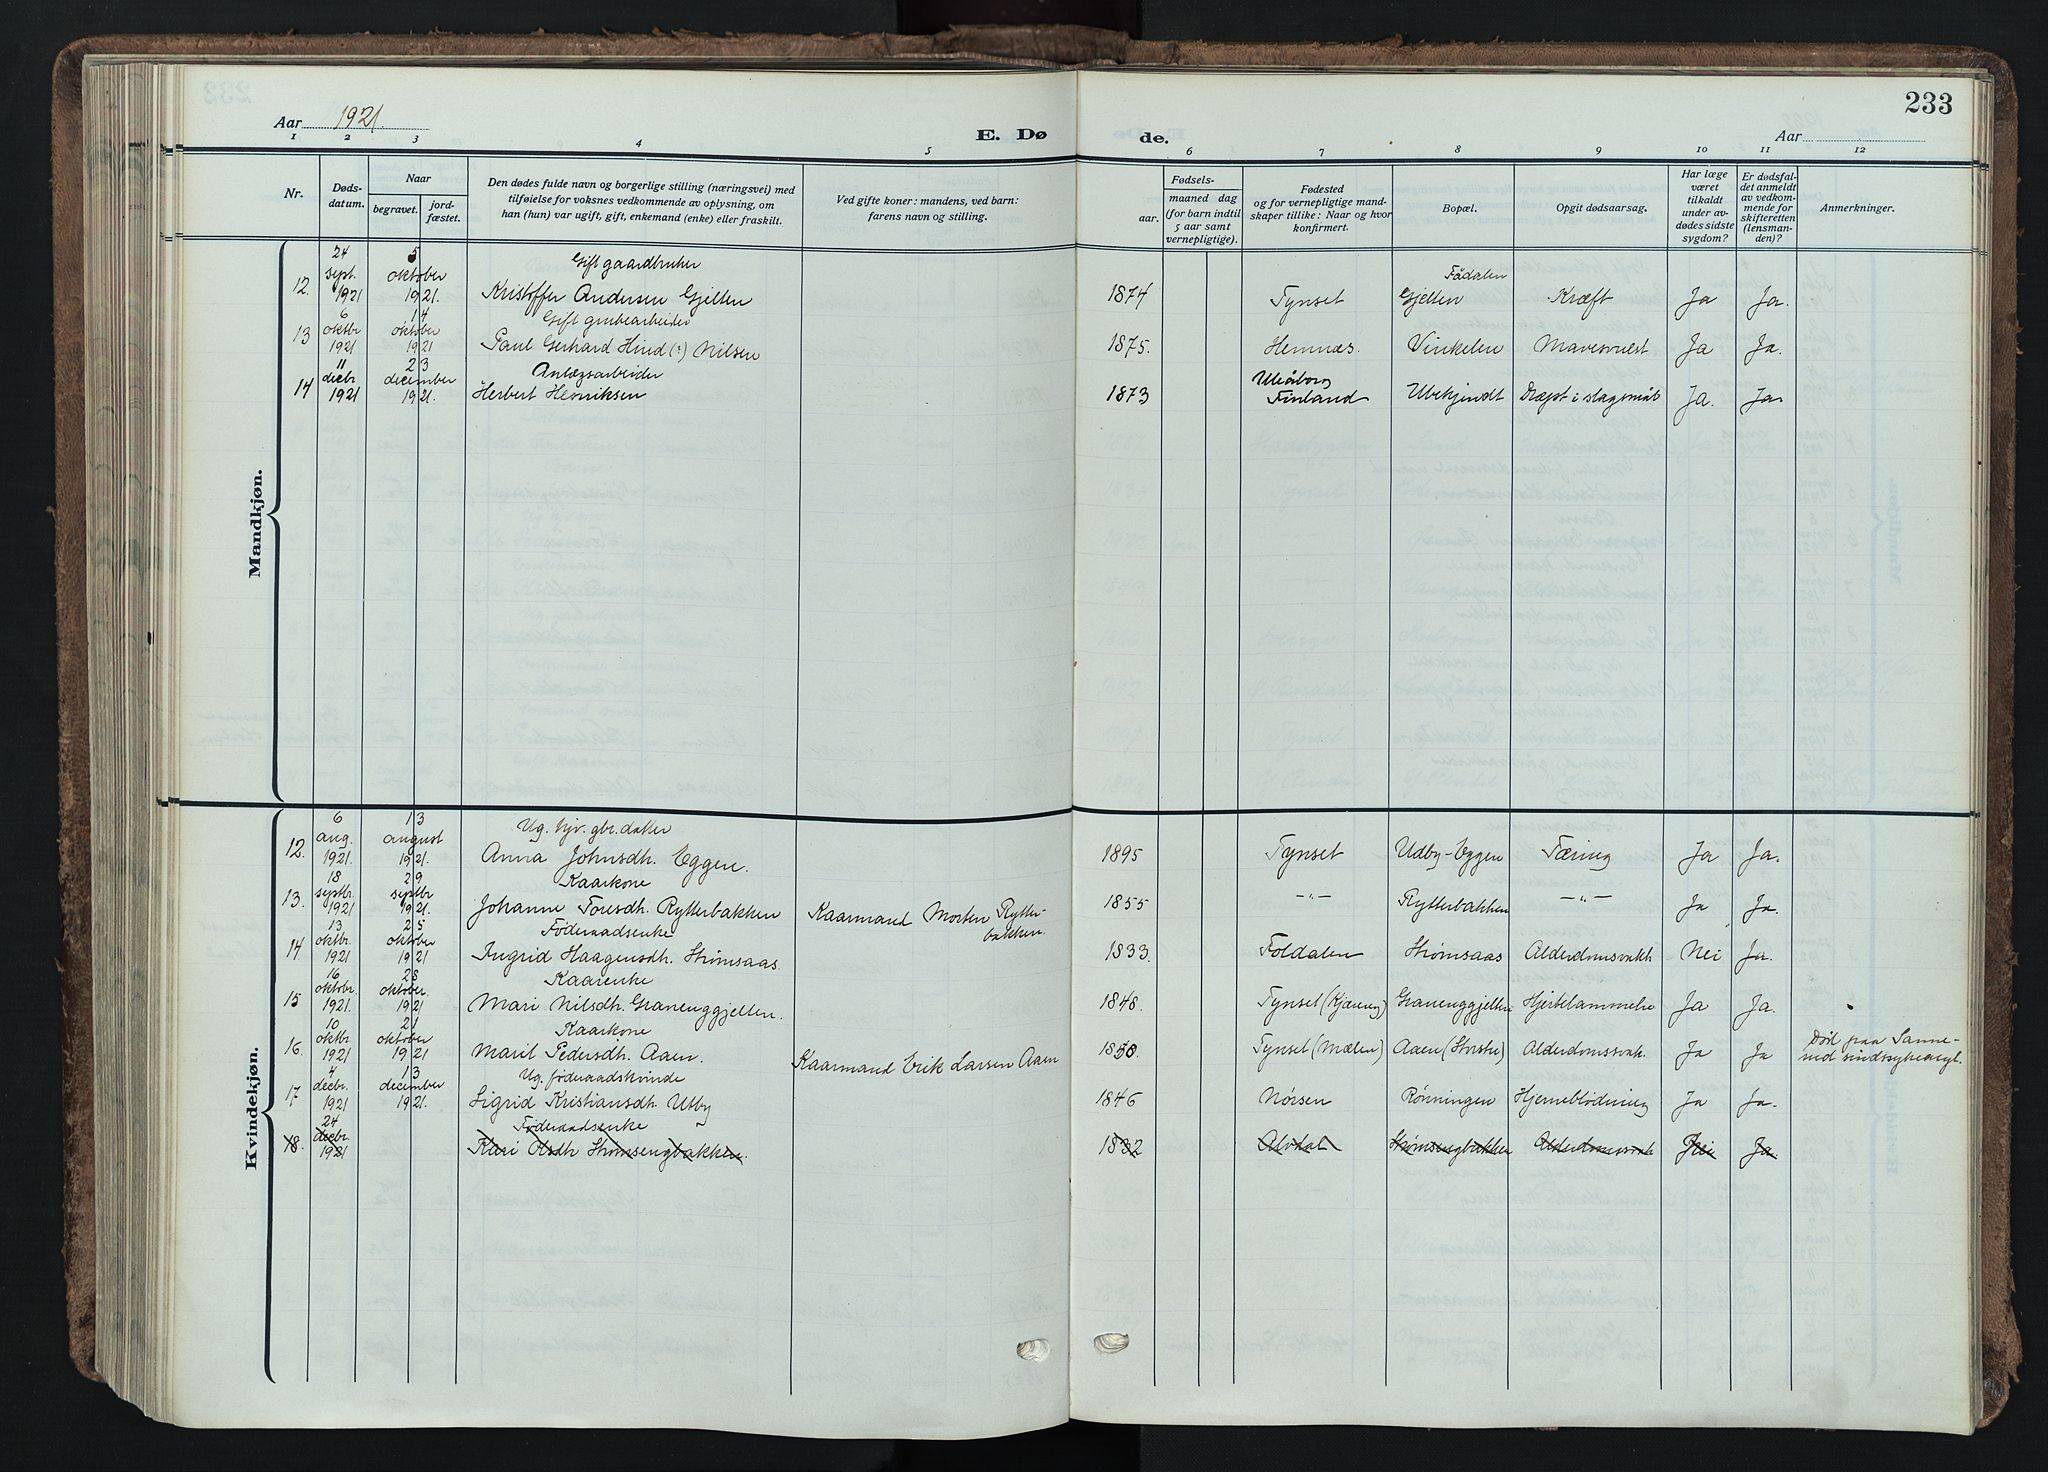 233
Aar 1921.
E. Dø
de.
Aar
1 2 3 4 5 6 7 8 9 10 11 12
Nr.
Døds-
datum.
Naar
begravet.
jord-
fæstet.
Den dødes fulde navn og borgerlige stilling (næringsvei) med
tilføielse for voksnes vedkommende av oplysning, om
han (hun) var ugift, gift, enkemand (enke) eller fraskilt.
Ved gifte koner: mandens, ved barn:
farens navn og stilling.
Fødsels-
aar.
maaned dag
(for barn indtil
5 aar samt
vernepligtige).
Fødested
og for vernepligtige mand-
skaper tillike: Naar og hvor
konfirmert.
Bopæl.
Opgit dødsaarsag.
Har læge
været
tilkaldt
under av-
dødes sidste
sygdom?
Er dødsfal-
det anmeldt
av vedkom-
mende for
skifteretten
(lensman-
den)?
Anmerkninger.
Mandkjøn.
24 5 Gift gaardbruker Fådalen
12. sept. 1921 oktober 1921. Kristoffer Andersen Gjelten 1874 Tynset Gjelten Kræft Ja Ja.
6 14 Gift grubearbeider
13 oktbr 1921 oktober 1921 Paul Gerhard Hind (:) Nilsen 1875. Hemnæs. Vinkelen Mavesvulst Ja Ja.
11 23 Anlægsarbeider Uleåborg
14 decbr. 1921 december 1921. Herbert Henriksen 1873 Finland Ubekjendt Dræpt i slagsmål Ja. Ja.
Kvindekjøn.
6 13 Ug. hjv. gbr. datter
12. aug. 1921. august 1921. Anna Johnsdh. Eggen. 1895 Tynset Udby-Eggen Tæring Ja Ja.
18 29 Kaarkone
13. septbr. 1921 septbr 1921. Johanne Toresdh. Rytterbakken Kaarmand Morten Rytter-
bakken. 1855 -"- Rytterbakken -"- Ja Ja.
13 25 Føderaadsenke
14 oktbr. 1921 oktober 1921 Ingrid Haagensdh. Strømsaas 1833. Foldalen Strømsaas Alderdomssvakh. Nei Ja.
16 28 Kaarenke
15 oktobr. 1921. oktober. 1921 Mari Nilsdh. Granenggjelten. 1848. Tynset (Kjæreng) Granenggjelten Hjertelammelse Ja Ja.
10 21 Kaarkone
16. oktbr. 1921 oktober 1921 Marit Pedersdh. Aaen. Kaarmand Erik Larsen Aaen 1850. Tynset (Mælen) Aaen (Storstu) Alderdomssvak. Ja Ja Død paa Sanne-
rud sindssykeasyl.
4 13 Ug. føderaadskvinde
17 decbr. 1921 december 1921. Sigrid Kristiansdh. Utby 1846 Nørsen Rønningen Hjerneblødning Ja Ja.
24 Føderaadsenke
18. decbr. 1921 Kari Olsdh Strømsengbakken. 1832 Alvdal Strømsengbakken Alderdomssvak Nei Ja